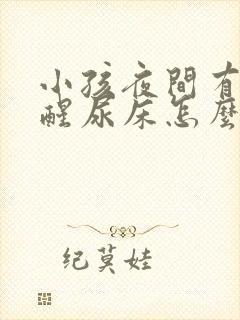 小孩夜間有
醒尿床怎麼
纪莫娃